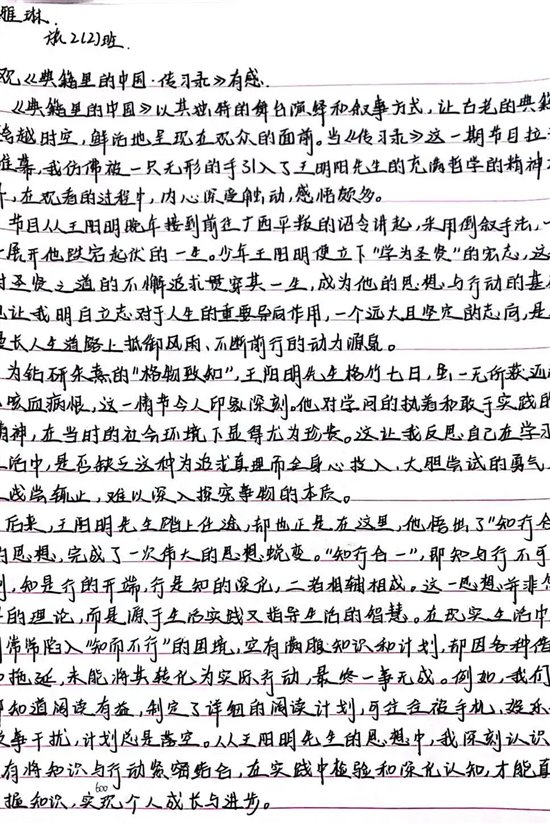 雅琳.
旅2(2)班.
观《典籍里的中国·传习录》有感.
《典籍里的中国》以其独特的舞台演绎和叙事方式，让古老的典籍
跨越时空，鲜活地呈现在观众的面前。当《传习录》这一期节目拉
帷幕，我仿佛被一只无形的手引入了王明阳先生的充满哲学的精神
，在观看的过程中，内心深受触动，感悟颇多。
节目从王阳明晚年接到前往广西平叛的诏令讲起，采用倒叙手法，一
展开他跌宕起伏的一生。少年王阳明便立下"学为圣贤"的宏志，这
对圣贤之道的不懈追求贯穿其一生，成为他的思想与行动的基
也让我明白立志对于人生的重要导向作用，一个远大且坚定的志向，是
漫长人生道路上抵御风雨、不断前行的动力源泉。
为钻研朱熹的"格物致知"，王阳明先生格竹七日，虽一无所获还
咳血病恨，这一情节令人印象深刻。他对学问的执着和敢于实践的
精神，在当时的社会环境下显得尤为珍贵。这让我反思自己在学习
生活中，是否缺乏这种为追求真理而全身心投入、大胆尝试的勇气
浅尝辄止，难以深入探究事物的本质。
后来，王阳明先生踏上仕途，却也正是在这里，他悟出了"知行合
的思想，完成了一次伟大的思想蜕变。"知行合一"，即知与行不可
割，知是行的开端，行是知的深化，二者相辅相成。这一思想并非
的理论，而是源于生活实践又指导生活的智慧。在现实生活中
们常常陷入"知而不行"的困境，空有满腹知识和计划，却因各种
和拖延，未能将其转化为实际行动，最终一事无成。例如，我们
都知道阅读有益，制定了详细的阅读计划，可往往被手机、娱乐
等干扰，计划总是落空。从王阳明先生的思想中，我深刻认识
有将知识与行动紧密结合，在实践中检验和深化认知，才能真
600
握知识，实现个人成长与进步。